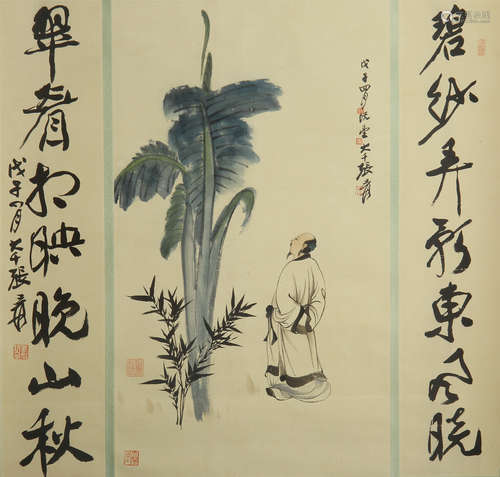 碧纱弄影东风晓
戊子四月 沉雲大千張爰
翠眉相映晚山秋
戊子四月 大千張爰